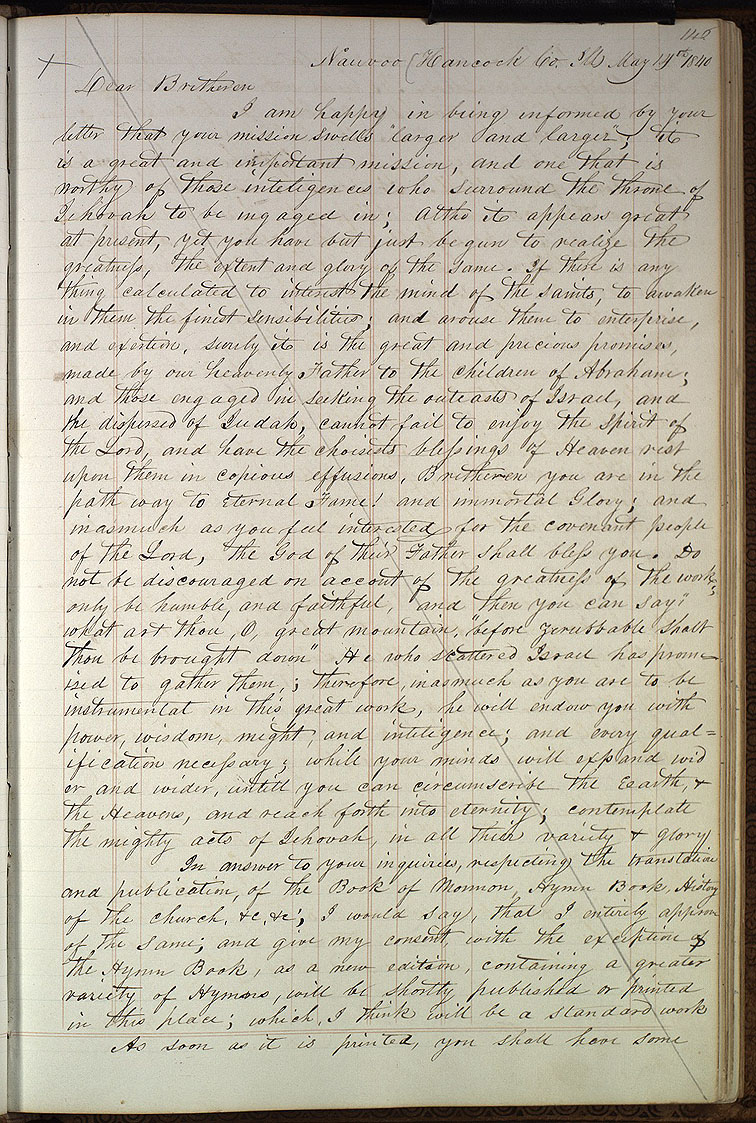 142
Nauvoo (Hancock Co. Ill May 14th 1840
Dear Bretheren
I am happy in being informed by your
letter that your mission swells "larger and larger", it
is a great and important mission, and one that is
worthy of those inteligences who surround the throne of
Jehovah to be ingaged in; Altho it appears great
at present, yet you have but just begun to realize the
greatness, the extent and glory of the same. If there is any
thing calculated to interest the mind of the saints, to awaken
in them the finest sensibilities; and arouse them to enterprise,
and exertion, surely it is the great and precious promises,
made by our heavenly Father to the children of Abraham;
and those engaged in seeking the outcasts of Israel, and
the dispersed of Judah, cannot fail to enjoy the Spirit of
the Lord, and have the choisests blessings of Heaven rest
upon them in copious effusions, Bretheren you are in the
path way to Eternal Fame! and immortal Glory; and
inasmuch as you feel interested for the covenant people
of the Lord, the God of their Father shall bless you. Do
not be discouraged on account of the greatness of the work;
only be humble, and faithful, and then you can say;"
what art thou, O, great mountain, "before Zerubbable shalt
thou be brought down" He who scattered Israel has prom
ised to gather them,; therefore, inasmuch as you are to be
instrumental in this great work, he will endow you with
power, wisdom, might, and inteligence; and every qual=
ification necessary; while your minds will expand wid
er and wider, untill you can circumscribe the Earth, &
the Heavens, and reach forth into eternity; contemplate
the mighty acts of Jehovah, in all their variety & glory
In answer to your inquiries, respecting the translation
and publication, of the Book of Mormon, Hymn Book, History
of the church, &c, &c', I would say, that I entirely approve
of the same, and give my consent, with the exception of
the Hymn Book, as a new edition, containing a greater
variety of Hymns, will be shortly published or printed
in this place; which, I think will be a standard work
As soon as it is printed, you shall have some